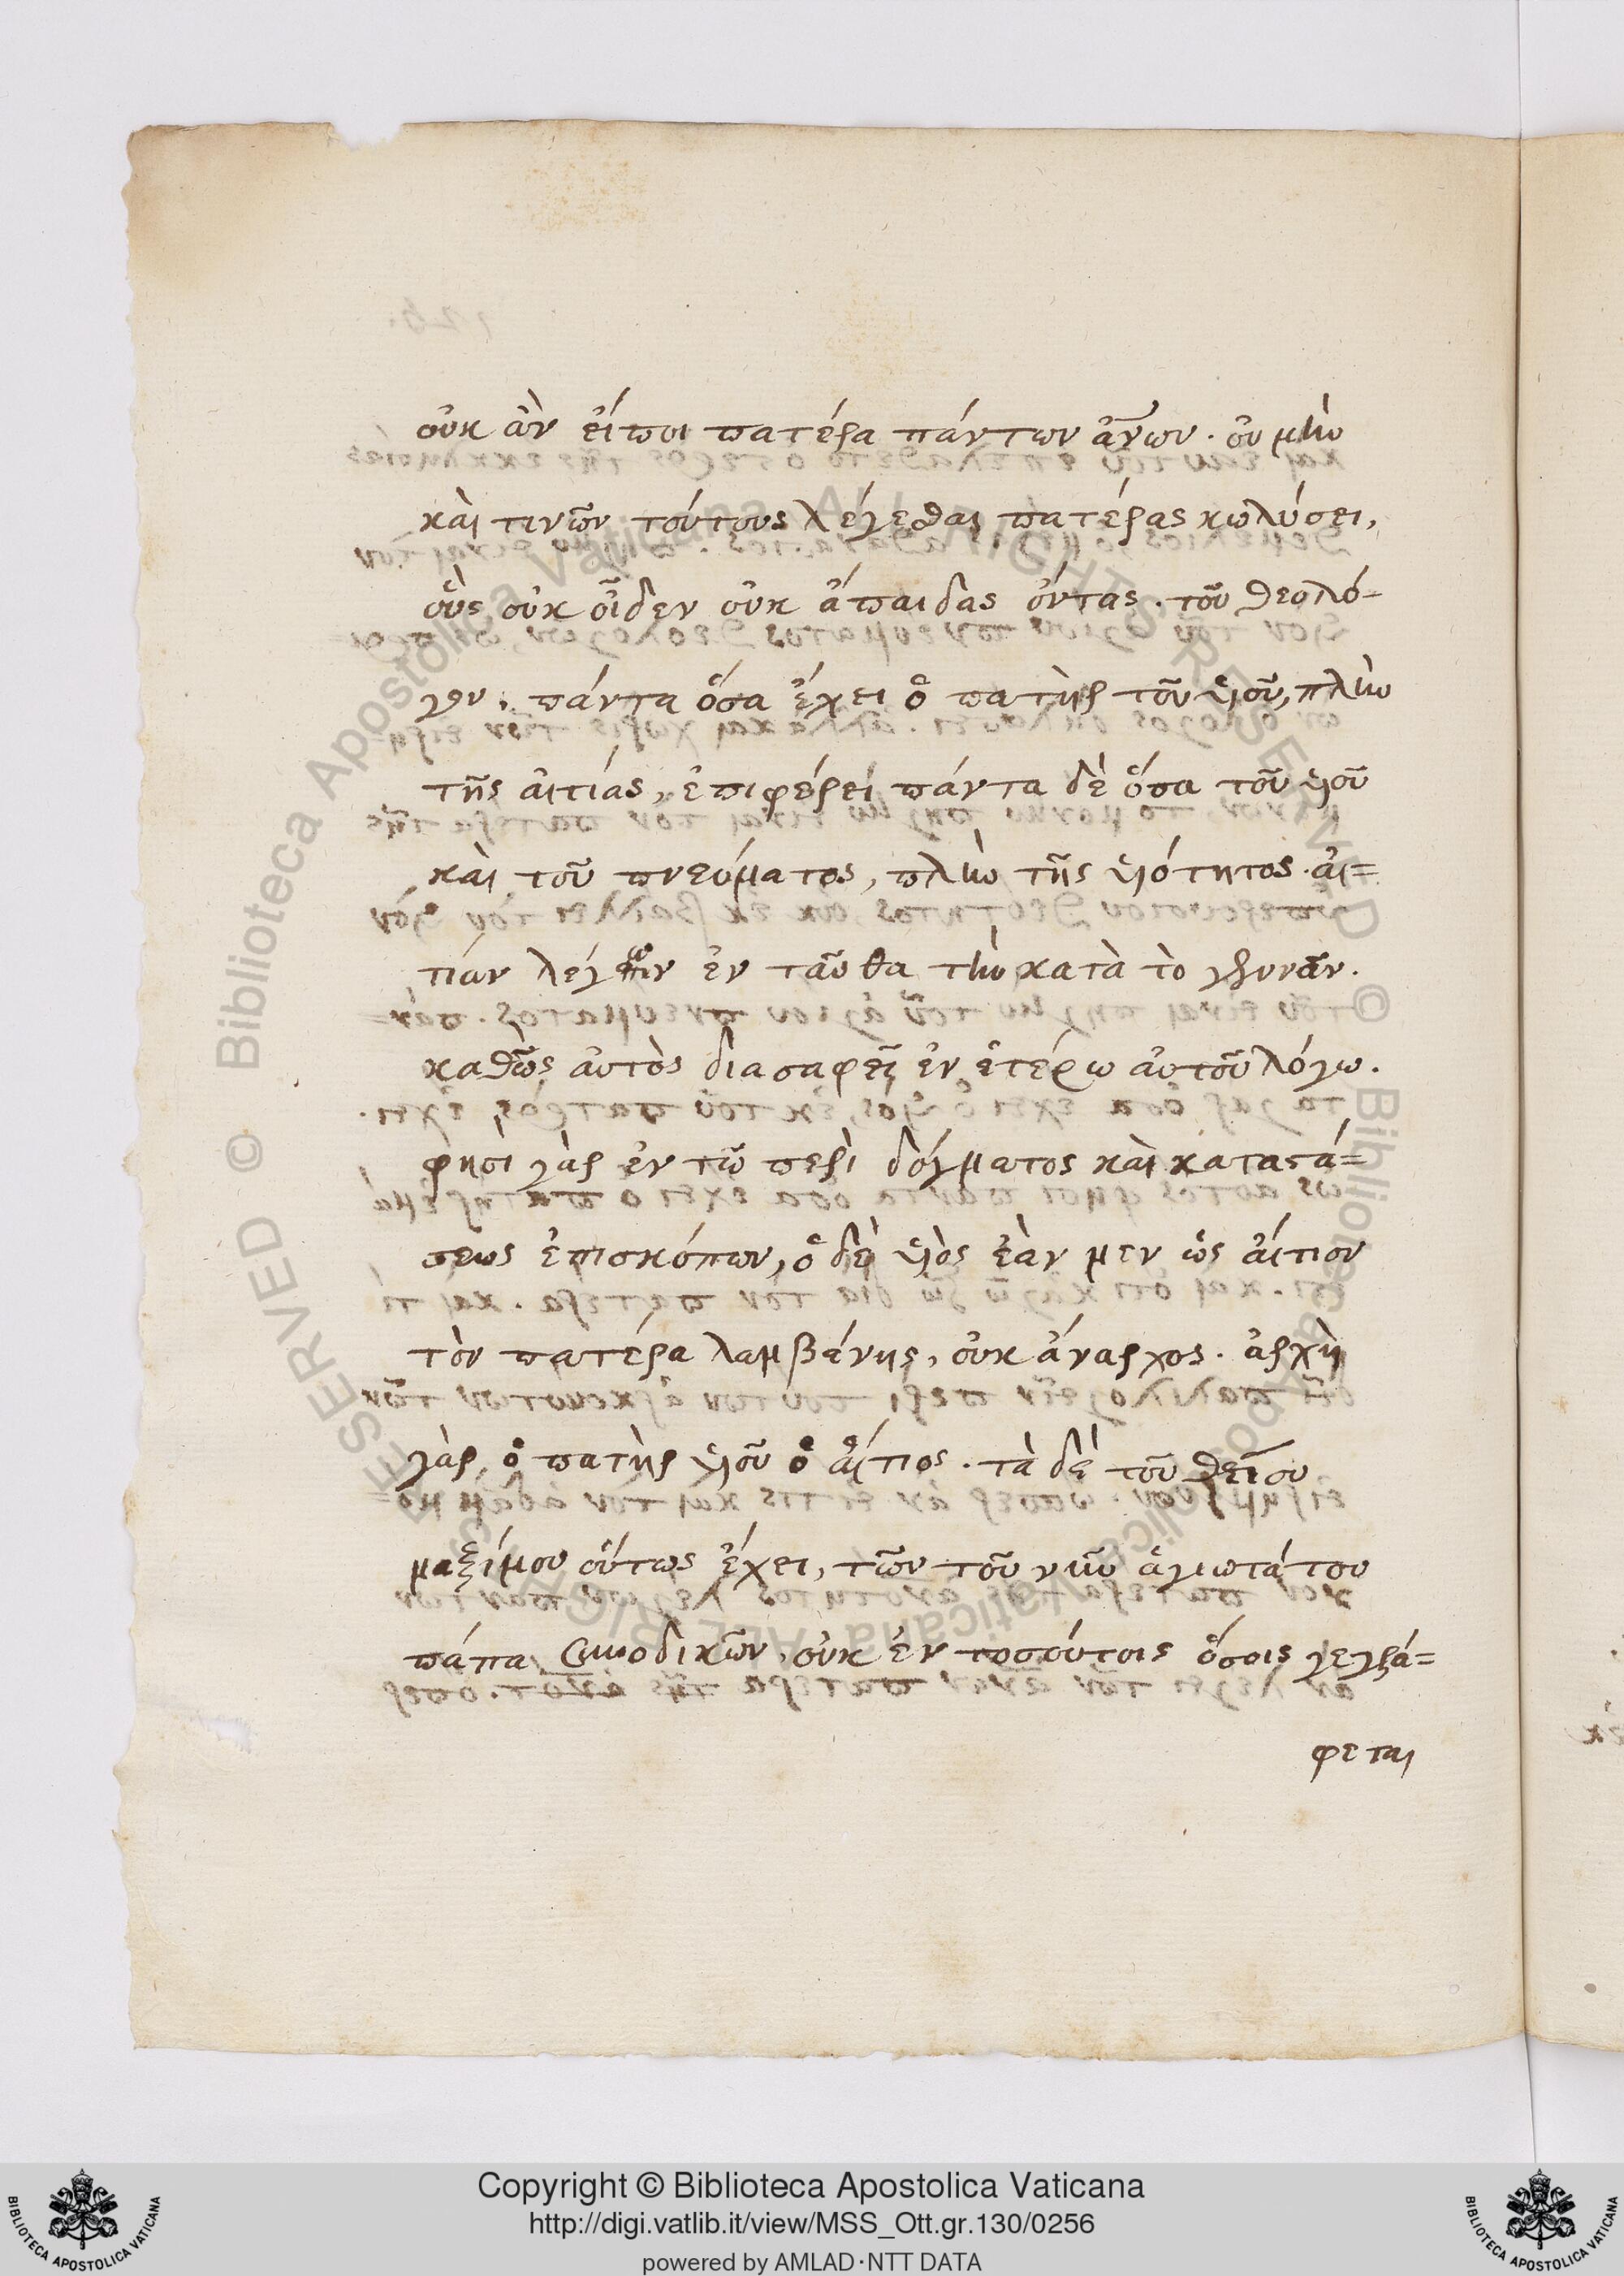 οὐκ ἂν εἴποι πατέρα πάντων ἀνων. οὐ μὴν
καὶ τινῶν τούτους λέγεσθαι πατέρας κωλύσει,
οὓς οὐκ οἶδεν οὐκ ἄπαιδας ὄντας. τοῦ θεολό-
γου. πάντα ὅσα ἔχει ὁ πατὴρ τοῦ ὑιοῦ, πλὴν
τῆς ἀιτίας, ἐπιφέρει πάντα δὲ ὅσα τοῦ ὑιοῦ
καὶ τοῦ πνεύματος, πλὴν τῆς ὑιότητος. ἀι=
τίαν ἐν ταῦθα τὴν κατὰ τὸ γεννᾶν.
καθὼς ἀυτὸς διασαφεῖ ἐν ἑτέρω ἀυτοῦ λόγω.
φησὶ γὰρ ἐν τῶ περὶ δόγματος καὶ καταστά=
σεως ἐπισκόπων, ὁ δὲ ὑιὸς ἐὰν μεν ὡς ἄιτιον
τὸν πατέρα λαμβάνης, οὐκ ἄναρχος. ἀρχὴ
γὰρ ὁ πατὴρ ὑιοῦ ὁ ἄιτιος. τὰ δὲ τοῦ θείου
μαξίμου οὕτως ἔχει, τῶν τοῦ νῦν ἁγιωτάτου
πάπα συνοδικῶν, οὐκ ἐν τοσούτοις ὅσοις γεγρά=
φεται
Copyright © Biblioteca Apostolica Vaticana
http://digi.vatlib.it/view/MSS_Ott.gr.130/0256
powered by AMLAD·NTT DATA
BIBLIOTECA APOSTOLICA VATICANA
BIBLIOTECA APOSTOLICA VATICANA